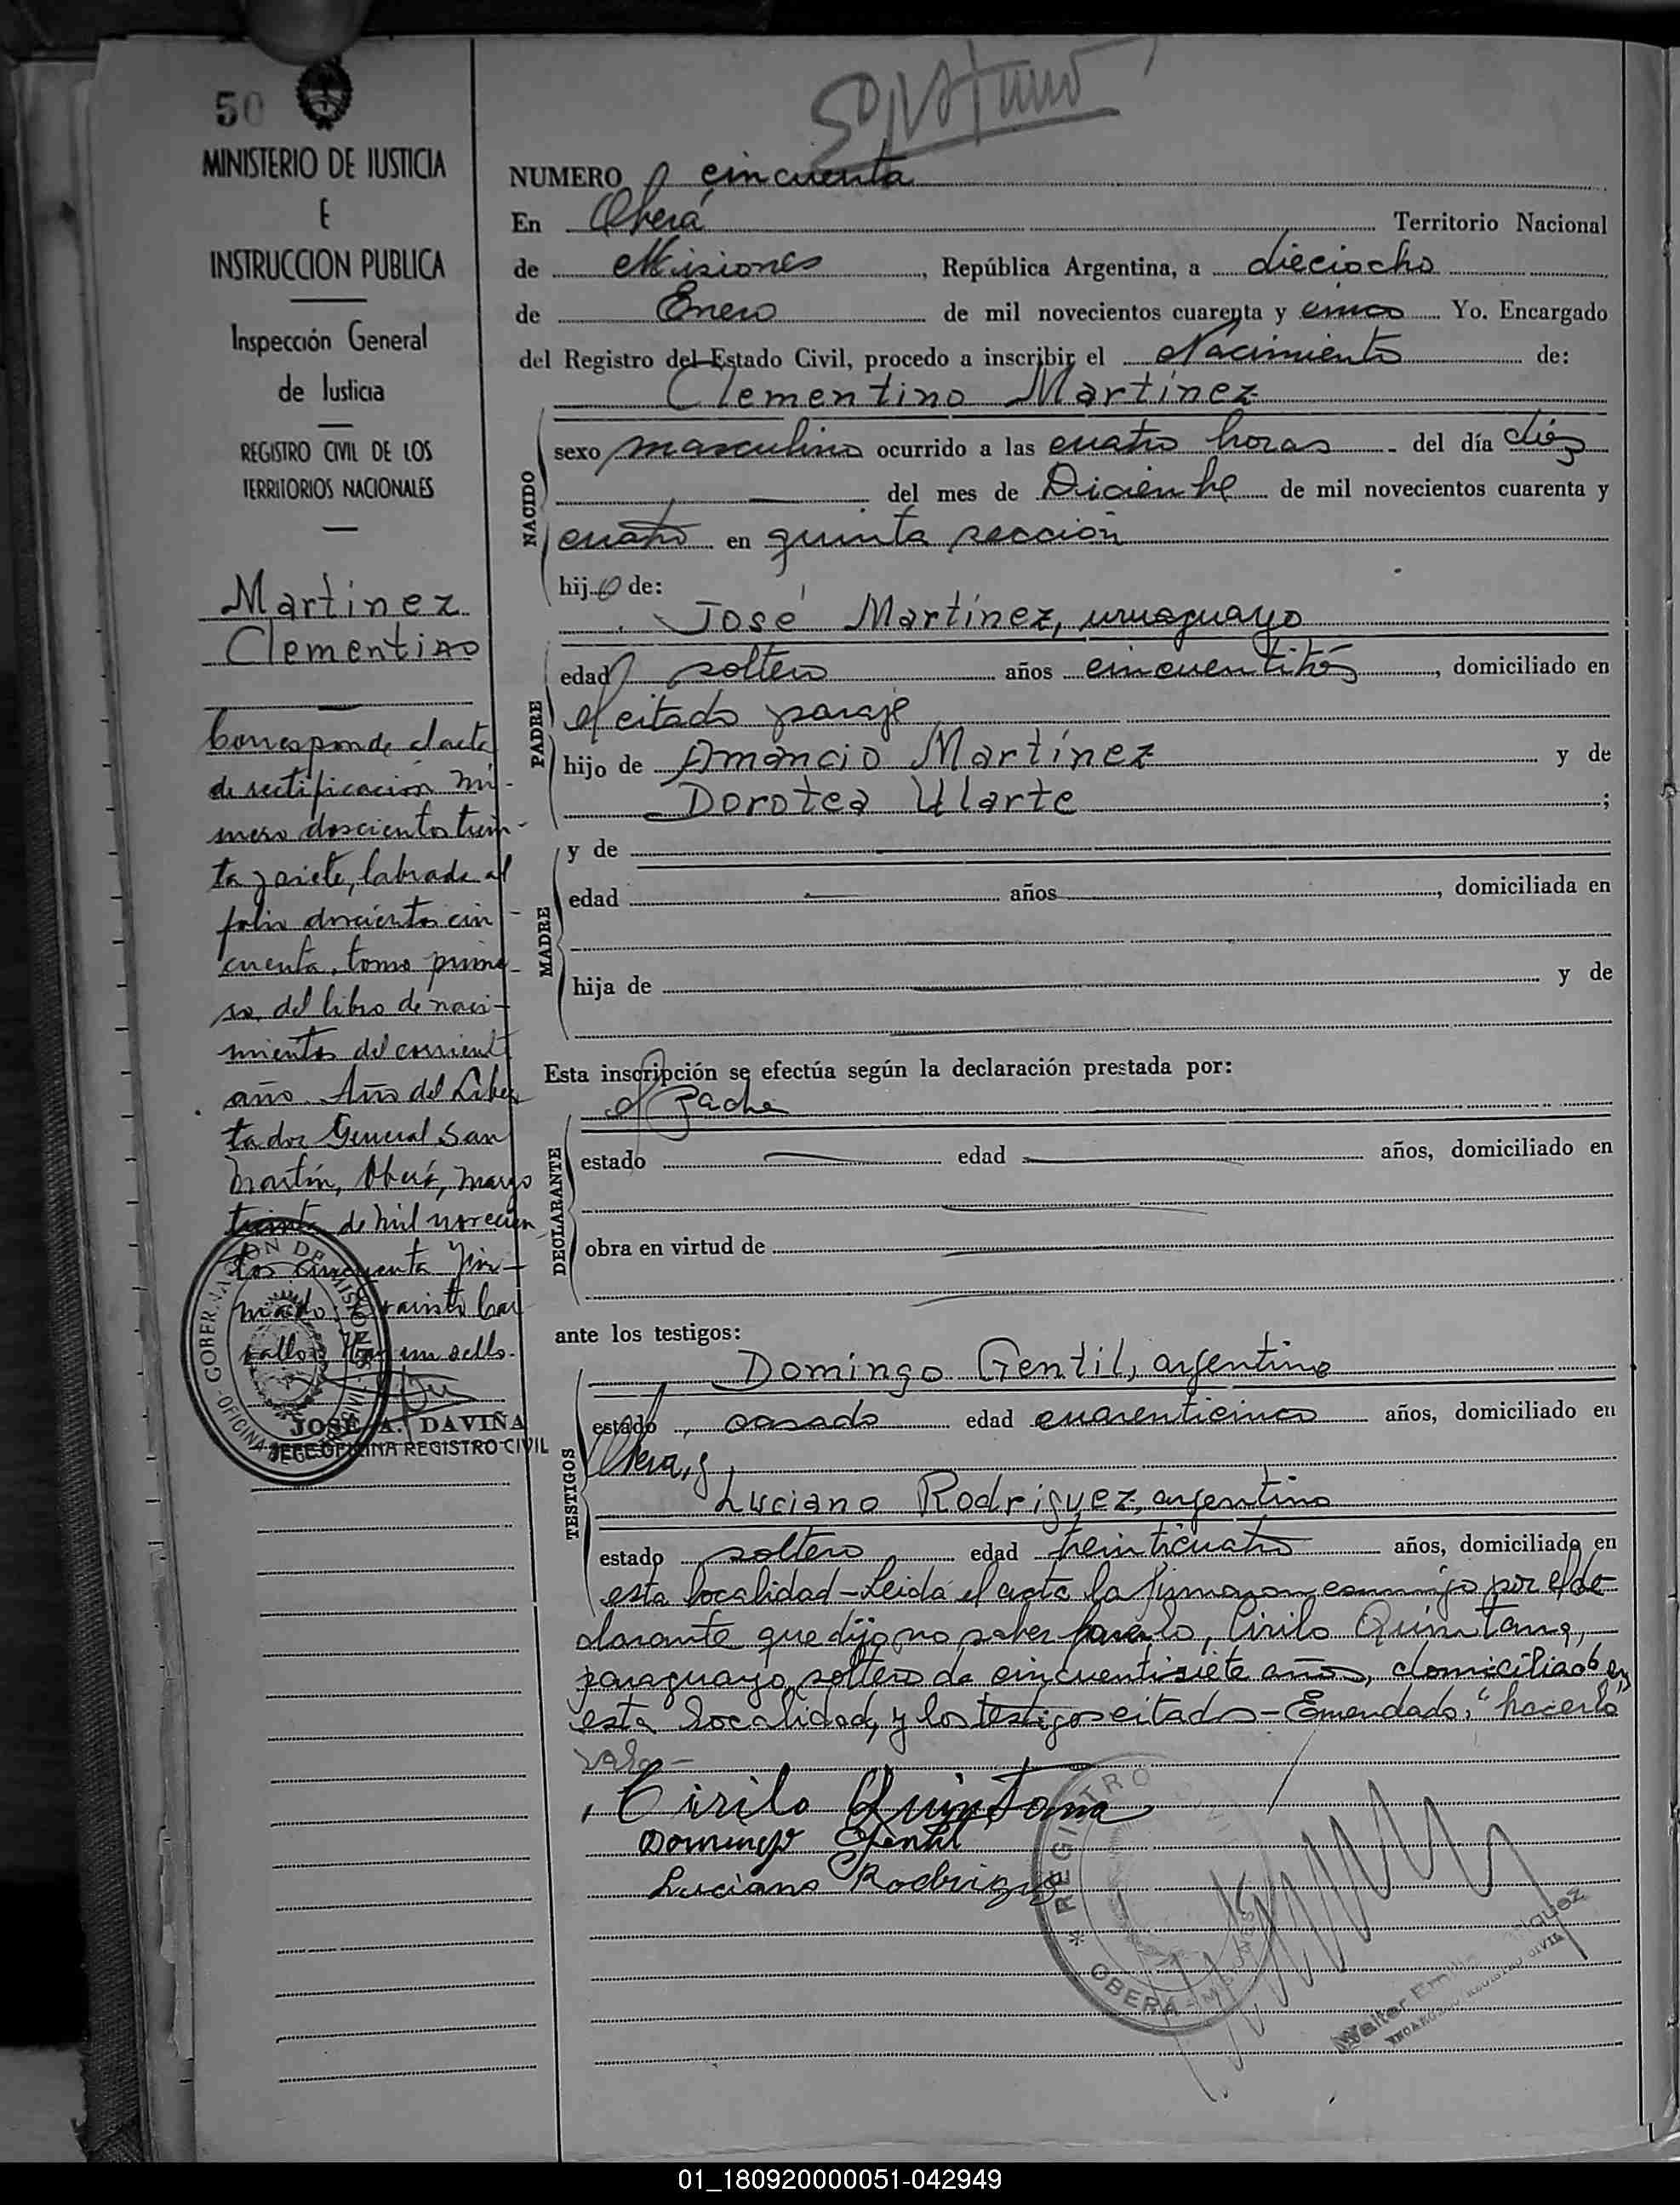 50
MINISTERIO DE JUSTICIA
E
INSTRUCCION PUBLICA
Inspección General
de Justicia
REGISTRO CIVIL DE LOS
TERRITORIOS NACIONALES
Martinez
Clementino
Corresponde al acta
de rectificación nú-
mero doscientos trein-
ta y siete, labrada al
folio doscientos cin-
cuenta, tomo prime-
ro, del libro de naci-
mientos del corriente
año. Año del Liber
tador General San
Martín, Oberá, marzo
treinta de mil novecien
tos cincuenta Fir-
mado:
Hay un sello.
GOBERNACION DE MISIONES
OFICINA
JOSE A. DAVIÑA
JEFE OFICINA REGISTRO CIVIL
NUMERO cincuenta
En Oberá Territorio Nacional
de Misiones, República Argentina, a dieciocho
de Enero de mil novecientos cuarenta y cinco Yo. Encargado
del Registro del Estado Civil, procedo a inscribir el Nacimiento de:
Clementino Martínez
NACIDO
sexo masculino ocurrido a las cuatro horas del día diez
del mes de Diciembre de mil novecientos cuarenta y
cuatro en quinta sección
hijo de:
José Martínez, uruguayo
PADRE
edad soltero años cincuentitrés, domiciliado en
el citado paraje
hijo de Amancio Martínez y de
Dorotea Ularte;
MADRE
y de
edad años, domiciliada en
hija de y de
Esta inscripción se efectúa según la declaración prestada por:
el padre
DECLARANTE
estado edad años, domiciliado en
obra en virtud de
ante los testigos:
TESTIGOS
Domingo Gentil, argentino
estado casado edad cuarenticinco años, domiciliado en
Oberá, y
Luciano Rodriguez, argentino
estado soltero edad treinticuatro años, domiciliado en
esta localidad - Leida el acta la firmaron conmigo por el de-
clarante que dijo no saber hacerlo, Cirilo Quintana,
paraguayo, soltero de cincuentisiete años, domiciliado en
esta localidad, y los testigos citados - Emendado: "hacerlo"
vale -
Cirilo Quintana
Domingo Gentil
Luciano Rodriguez
REGISTRO CIVIL
OBERA - MISIONES
Walter
ENCARGADO REGISTRO CIVIL
01_180920000051-042949